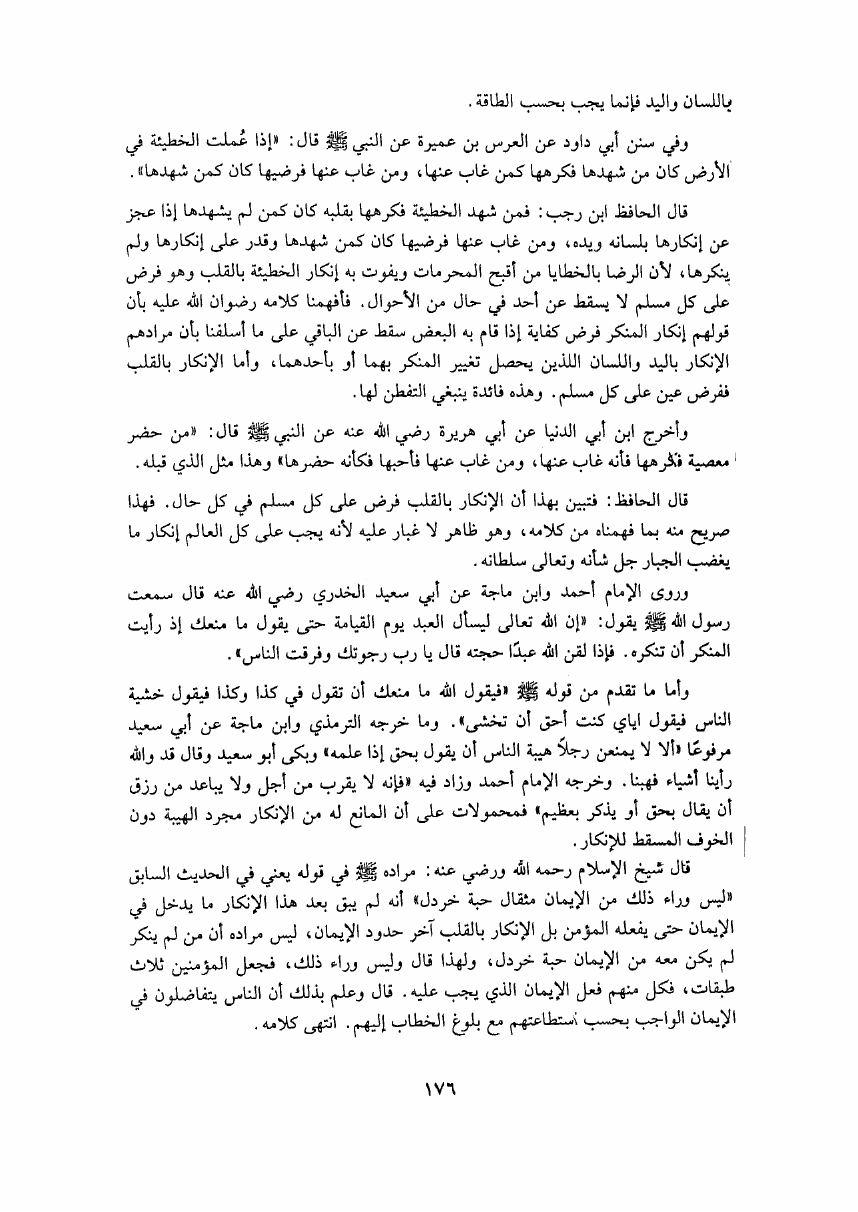 باللسان واليد فإنما يجب بحسب الطاقة .
وفي سنن أبي داود عن العرس بن عميرة عن النبي ﷺ قال : «إذا عُملت الخطيئة في
الأرض كان من شهدها فكرهها كمن غاب عنها، ومن غاب عنها فرضيها كان كمن شهدها» .
قال الحافظ ابن رجب : فمن شهد الخطيئة فكرهها بقلبه كان كمن لم يشهدها إذا عجز
عن إنكارها بلسانه ويده، ومن غاب عنها فرضيها كان كمن شهدها وقدر على إنكارها ولم
ينكرها، لأن الرضا بالخطايا من أقبح المحرمات ويفوت به إنكار الخطيئة بالقلب وهو فرض
على كل مسلم لا يسقط عن أحد في حال من الأحوال. فأفهمنا كلامه رضوان الله عليه بأن
قولهم إنكار المنكر فرض كفاية إذا قام به البعض سقط عن الباقي على ما أسلفنا بأن مرادهم
الإنكار باليد واللسان اللذين يحصل تغيير المنكر بهما أو بأحدهما، وأما الإنكار بالقلب
ففرض عين على كل مسلم. وهذه فائدة ينبغي التفطن لها.
وأخرج ابن أبي الدنيا عن أبي هريرة رضي الله عنه عن النبي ﷺ قال: «من حضر
معصية فكرهها فأنه غاب عنها، ومن غاب عنها فأحبها فكأنه حضرها» وهذا مثل الذي قبله.
قال الحافظ : فتبين بهذا أن الإنكار بالقلب فرض على كل مسلم في كل حال. فهذا
صريح منه بما فهمناه من كلامه، وهو ظاهر لا غبار عليه لأنه يجب على كل العالم إنكار ما
يغضب الجبار جل شأنه وتعالى سلطانه.
وروى الإمام أحمد وابن ماجة عن أبي سعيد الخدري رضي الله عنه قال سمعت
رسول الله ﷺ يقول: «إن الله تعالى ليسأل العبد يوم القيامة حتى يقول ما منعك إذ رأيت
المنكر أن تنكره. فإذا لقن الله عبدًا حجته قال يا رب رجوتك وفرقت الناس».
وأما ما تقدم من قوله ﷺ «فيقول الله ما منعك أن تقول في كذا وكذا فيقول خشية
الناس فيقول اياي كنت أحق أن تخشى». وما خرجه الترمذي وابن ماجة عن أبي سعيد
مرفوعًا «ألا لا يمنعن رجلاً هيبة الناس أن يقول بحق إذا علمه» وبكى أبو سعيد وقال قد والله
رأينا أشياء فهبنا. وخرجه الإمام أحمد وزاد فيه «فإنه لا يقرب من أجل ولا يباعد من رزق
أن يقال بحق أو يذكر بعظيم» فمحمولات على أن المانع له من الإنكار مجرد الهيبة دون
الخوف المسقط للإنكار.
قال شيخ الإسلام رحمه الله ورضي عنه: مراده ﷺ في قوله يعني في الحديث السابق
«ليس وراء ذلك من الإيمان مثقال حبة خردل» أنه لم يبق بعد هذا الإنكار ما يدخل في
الإيمان حتى يفعله المؤمن بل الإنكار بالقلب آخر حدود الإيمان، ليس مراده أن من لم ينكر
لم يكن معه من الإيمان حبة خردل، ولهذا قال وليس وراء ذلك، فجعل المؤمنين ثلاث
طبقات، فكل منهم فعل الإيمان الذي يجب عليه. قال وعلم بذلك أن الناس يتفاضلون في
الإيمان الواجب بحسب إستطاعتهم مع بلوغ الخطاب إليهم. انتهى كلامه.
١٧٦